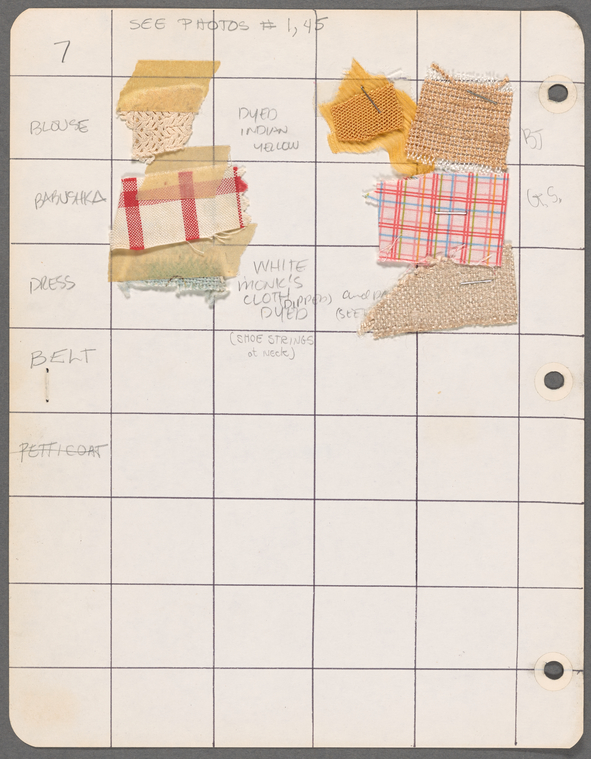 SEE PHOTOS # 1, 45
7
BLOUSE
DYED
INDIAN
YELLOW
BJ
BABUSHKA
G.S.
DRESS
WHITE
MONK'S
CLOTH (DIPPED) and
DYED
(SEE
(SHOE STRINGS
at neck)
BELT
PETTICOAT